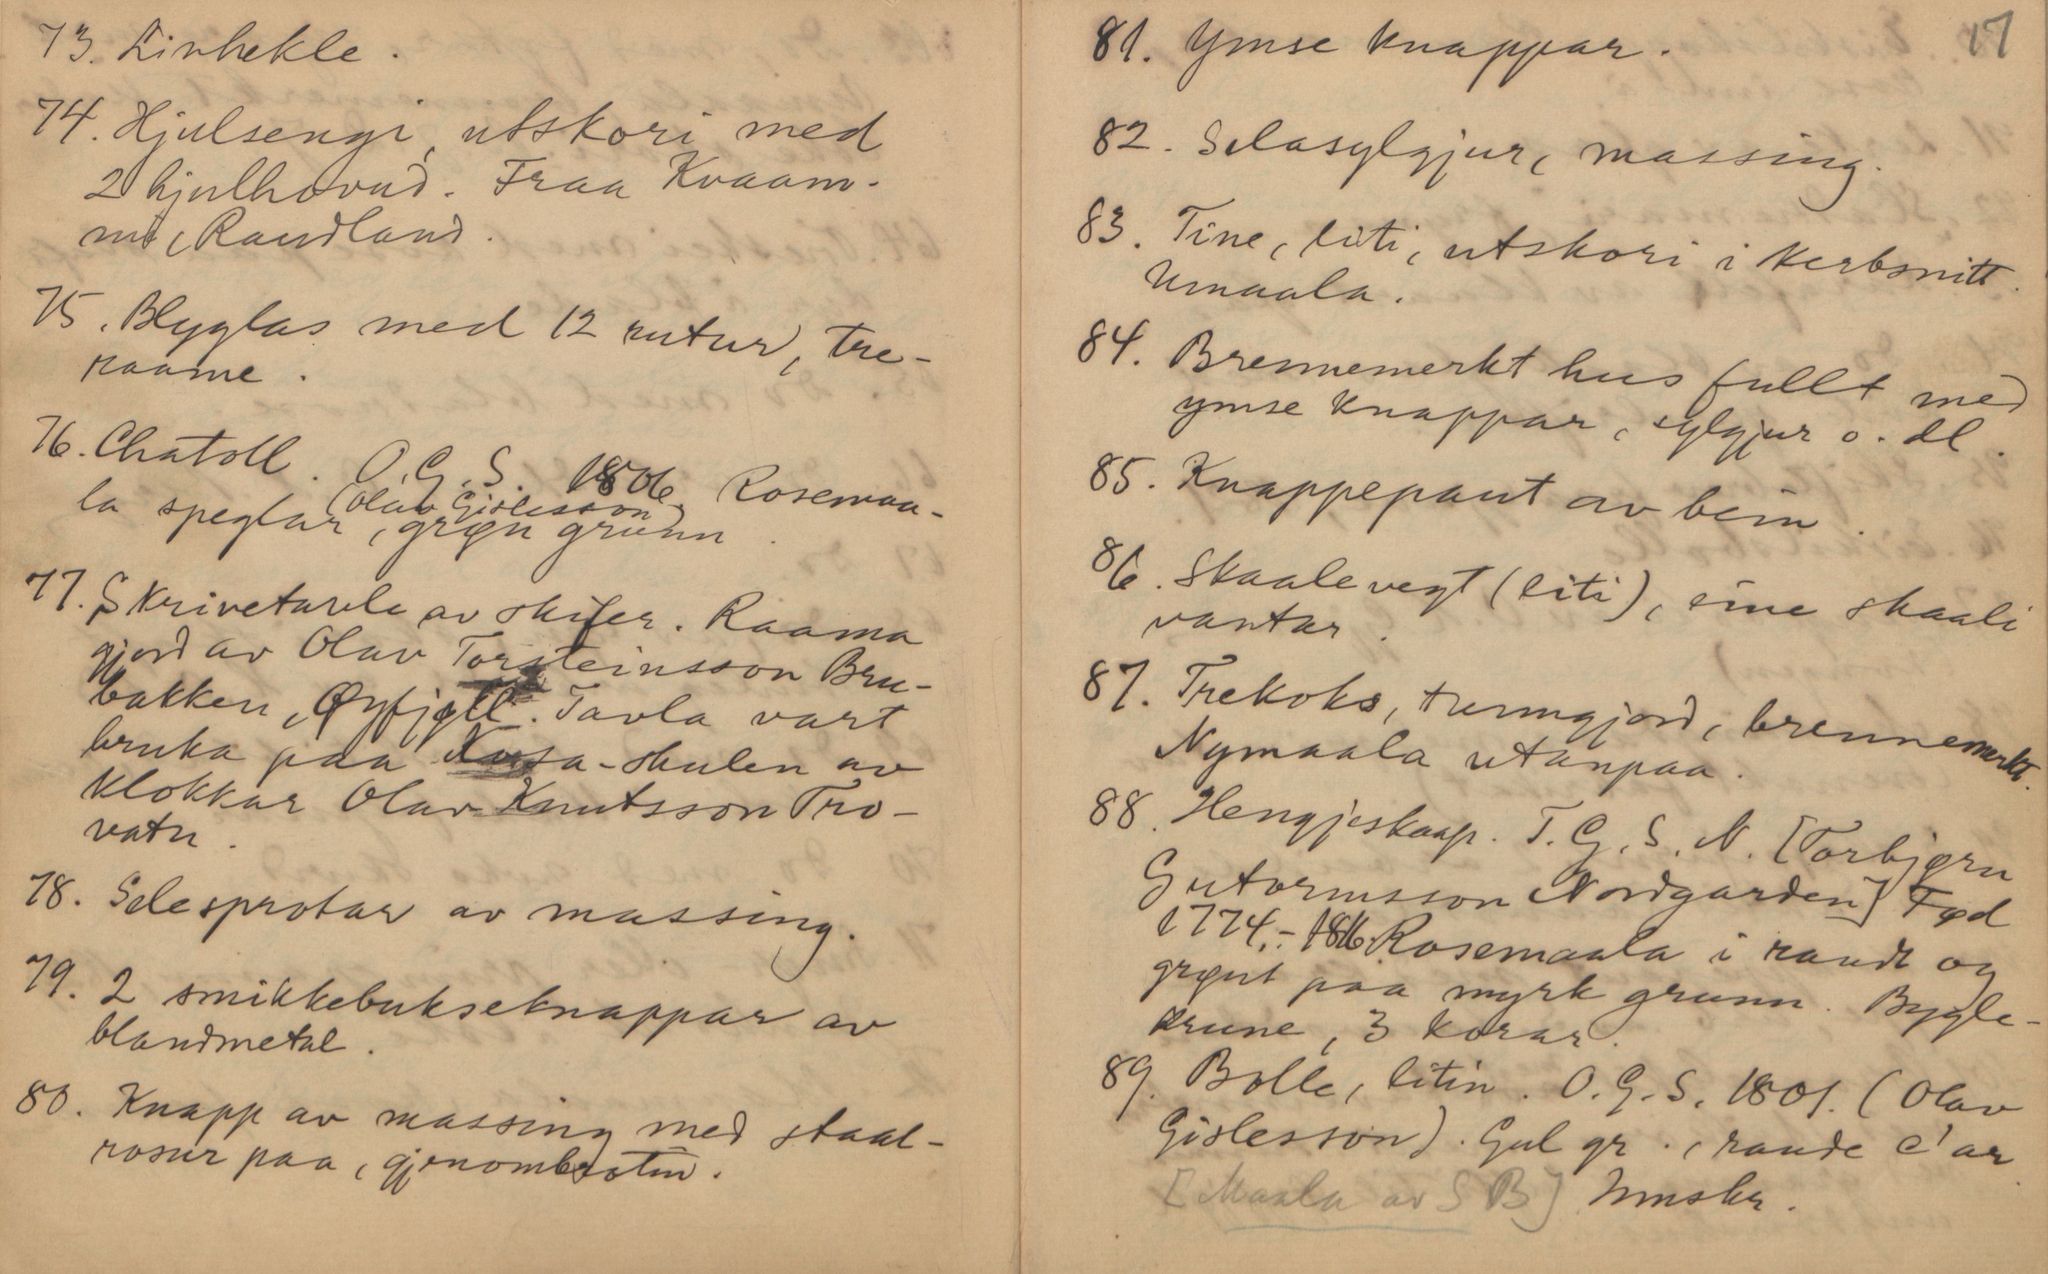 73. Linhekle.
74. Hjulsengi, utskori med
2 hjulhovud. Fraa Kvaam-
mi, Raudland.
75. Blyglas med 12 rutur, tre-
raame.
76. Chatoll. O.G.S. 1806. Rosemaa-
(Olav Gislesson)
la speglar, grøn grunn.
77. Skrivetavle av skifer. Raama
gjord av Olav Torsteinsson Bru-
bakken, Øyfjell. Tavla vart
bruka paa -skulen av
klokkar Olav Knutsson Tro-
vatn.
78. Selesprotar av massing.
79. 2 smikkebukseknappar av
blandmetal.
80. Knapp av massing med staal-
rosur paa, gjenombrotin.
17
81. Ymse knappar.
82. Selasylgjur, massing.
83. Tine, liti, utskori i Kerbsnitt.
Umaala.
84. Brennemerkt hus fullt med
ymse knappar, sylgjur o. dl.
85. Knappepaut av bein.
86. Skaalevegt (liti), eine skaali
vantar.
87. Trekoks, turmgjord, brennemerkt.
Nymaala utanpaa.
88. Hengjeskaap. T.G.S.N. [Torbjørn
Gutormsson Nordgarden] Fød
1774,- 1816. Rosemaala i raudt og
grønt paa myrk grunn. Bygle-
krune, 3 korar.
89. Bolle, litin. O.G.S. 1801. (Olav
Gislesson). Gul gr., raude c'ar
[Maala av S B] Innskr.